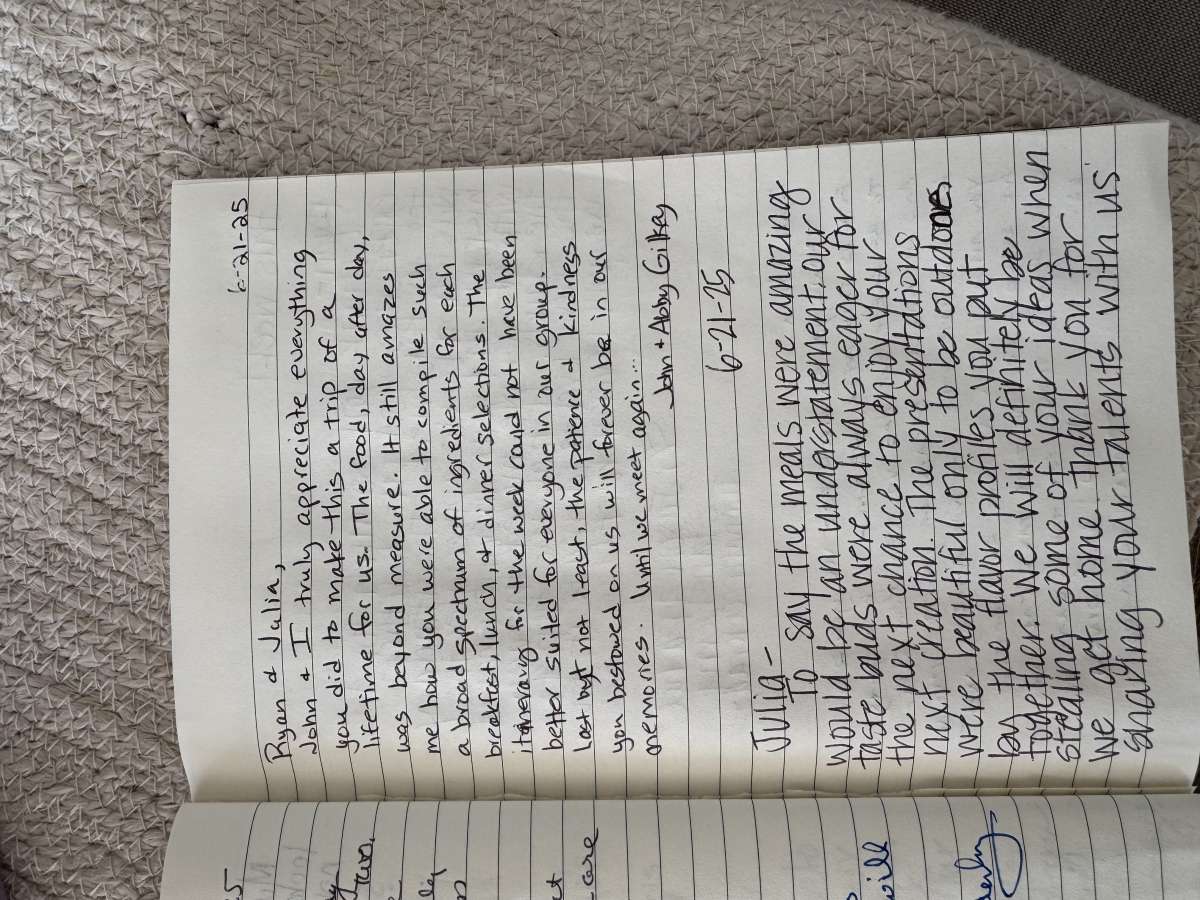 6-21-25
Ryan & Julia,
John & I truly appreciate everything
you did to make this a trip of a
lifetime for us. The food, day after day,
was beyond measure. It still amazes
me how you were able to compile such
a broad spectrum of ingredients for each
breakfast, lunch, & dinner selections. The
itinerary for the week could not have been
better suited for everyone in our group.
Last but not least, the patience & kindness
you bestowed on us will forever be in our
memories. Until we meet again...
John & Abby Gilkay
6-21-25
Julia-
To say the meals were amazing
would be an understatement. Our
taste buds were always eager for
the next chance to enjoy your
next creation. The presentations
were beautiful only to be outdone
by the flavor profiles you put
together. We will definitely be
stealing some of your ideas when
we get home. Thank you for
sharing your talents with us
5
run.
care
will